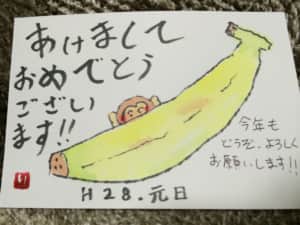 あけまして
おめでとう
ござい
ます!!
今年も
どうぞ、よろしく
お願いします!!
H28.元日